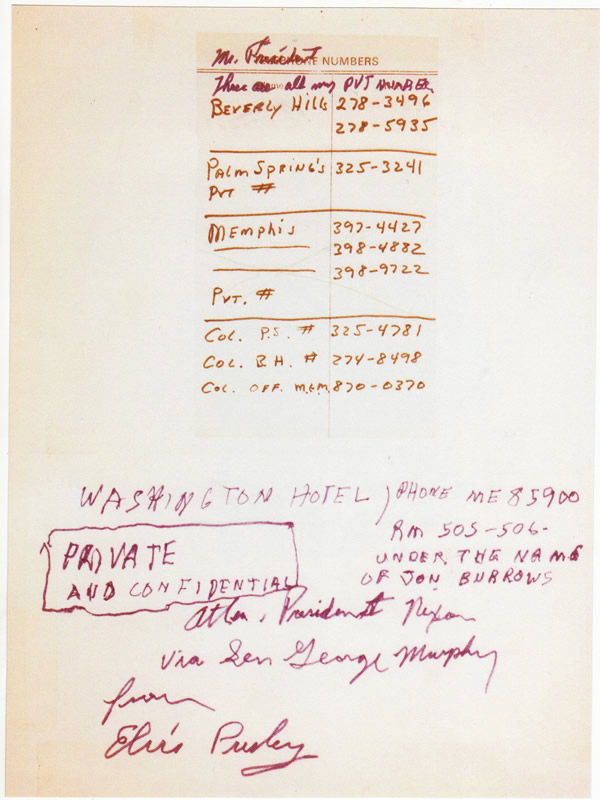 Mr. President
PHONE NUMBERS
These are all my PVT NUMBER
BEVERLY HILLS 278-3496
278-5935
PALM SPRING'S 325-3241
PVT #
MEMPHIS 397-4427
398-4882
398-9722
PVT. #
COL. P.S. # 325-4781
COL. B.H. # 274-8498
COL. OFF. MEM. 870-0370
WASHINGTON HOTEL, PHONE ME 85900
RM 505-506-
UNDER THE NAME
OF JON BURROWS
PRIVATE
AND CONFIDENTIAL
Attn. President Nixon
via Sen George Murphy
from
Elvis Presley